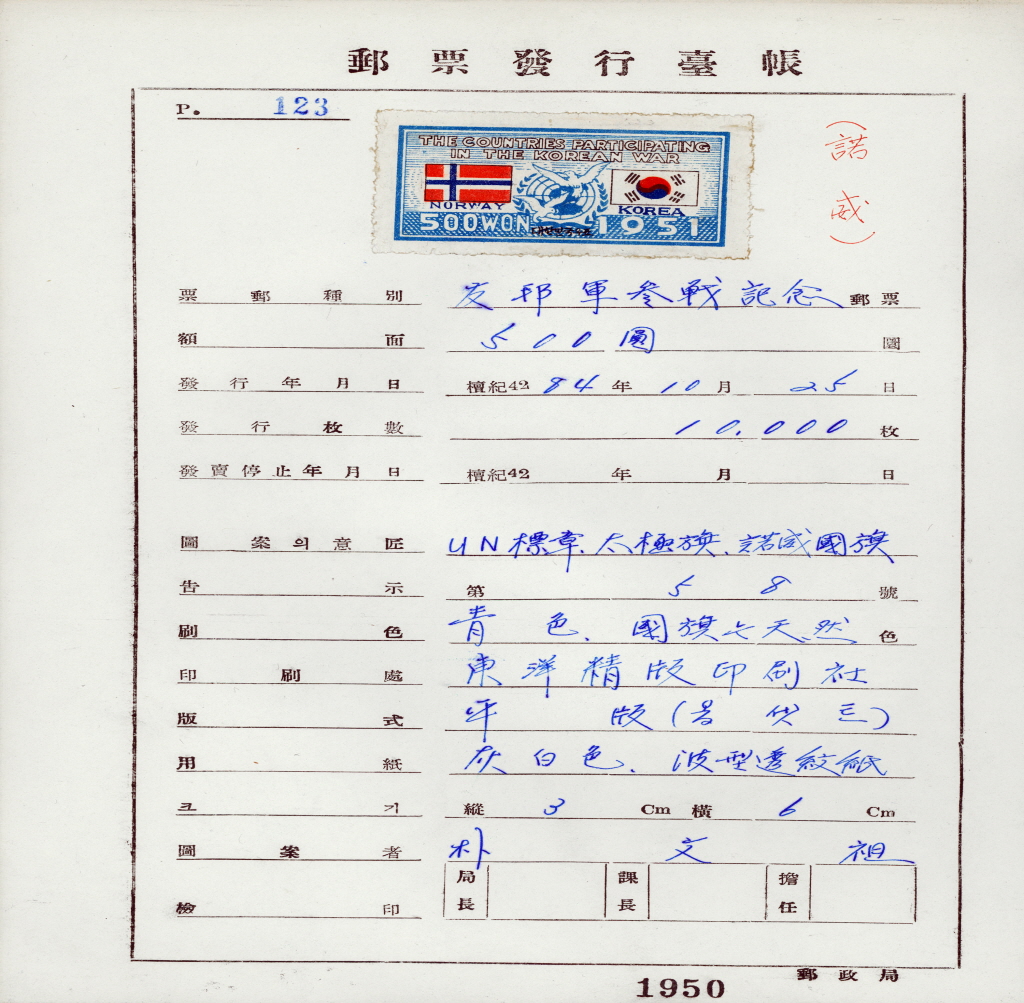 郵票發行臺帳
P. 123
THE COUNTRIES PARTICIPATING
IN THE KOREAN WAR
NORWAY KOREA
500WON 1951
(諾威)
票郵種別 友邦軍參戰記念 郵票
額面 500圓 圓
發行年月日 檀紀4284年10月25日
發行枚數 10,000枚
發賣停止年月日 檀紀42 年 月 日
圖案의意匠 UN標章、太極旗、諾威國旗
告示 第58號
刷色 青色、國旗七天然色
印刷處 東洋精版印刷社
版式 平版(
用紙 灰白色、波型透紋紙
크기 縱 3 Cm 橫 6 Cm
圖案者 朴文祖
檢印 局長 課長 擔任
郵政局
1950